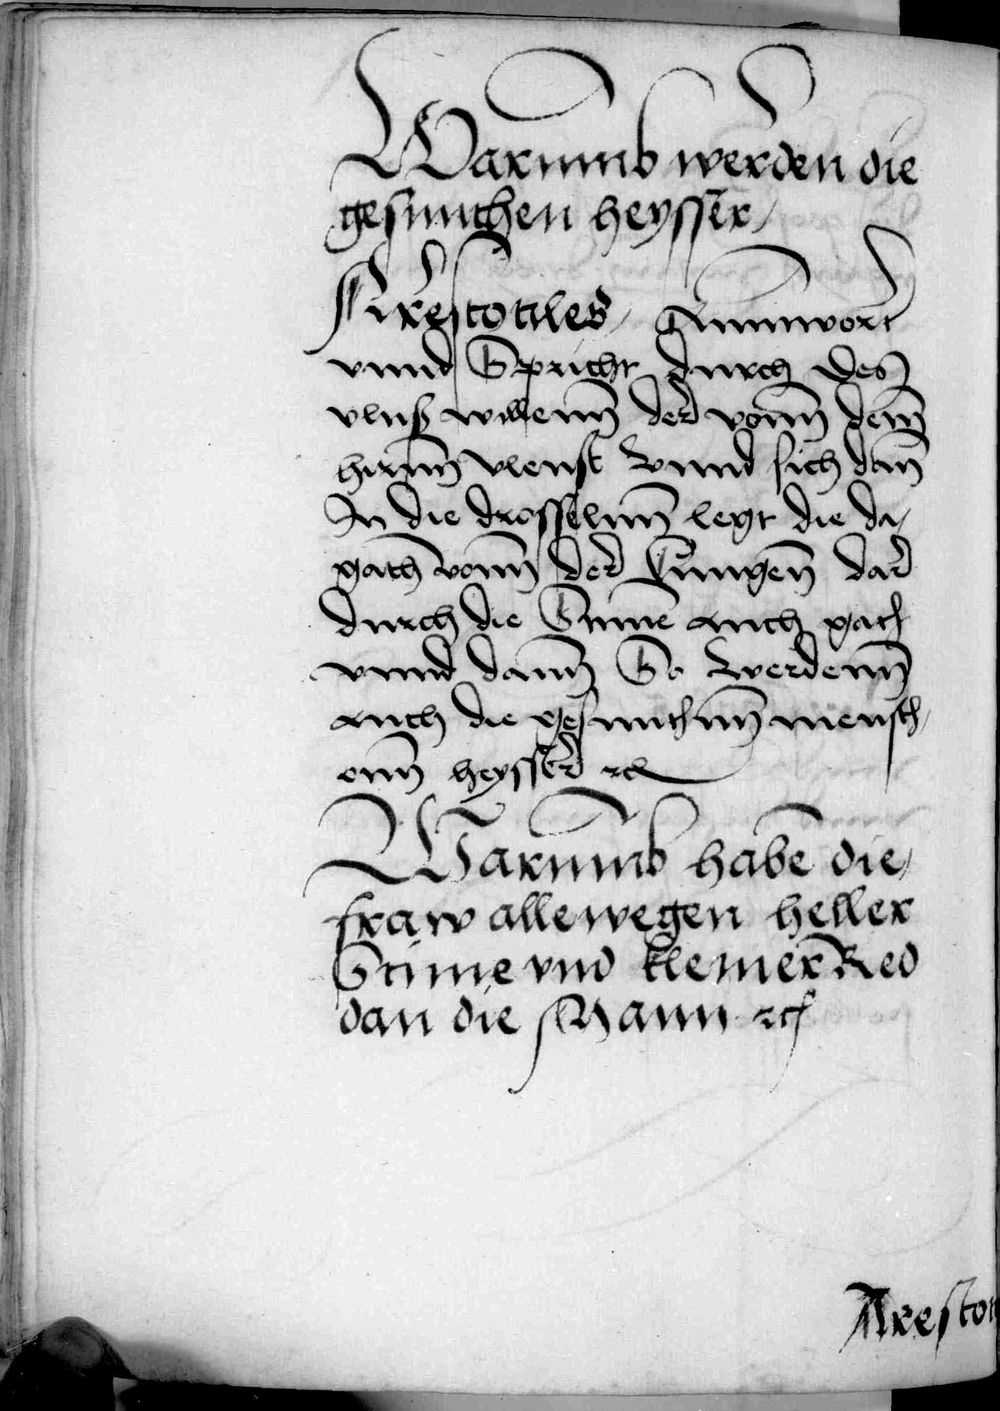 Warumb werden die
gesunthen heysser /
Arestotiles / Anntwort
vnnd Spricht durch des
vluß willenn der vonn dem
hirnn vleust Vnnd sich dan
In die drosselnn legt die da /
gath vonn der Lungen dar
durch die Stime auch gath
vnnd dann So werdenn
auch die gesunthnn mensch /
enn heysser ꝛc
Warumb habe die /
fraw allewegen heller
Stime vnd kleiner Red
dan die Mann ꝛc
Arestot